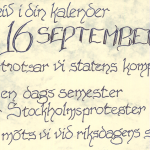 iv i din kalender
16 SEPTEMBER
trotsar vi statens komp
en dags semester
Stockholmsprotester
möts vi vid riksdagens s